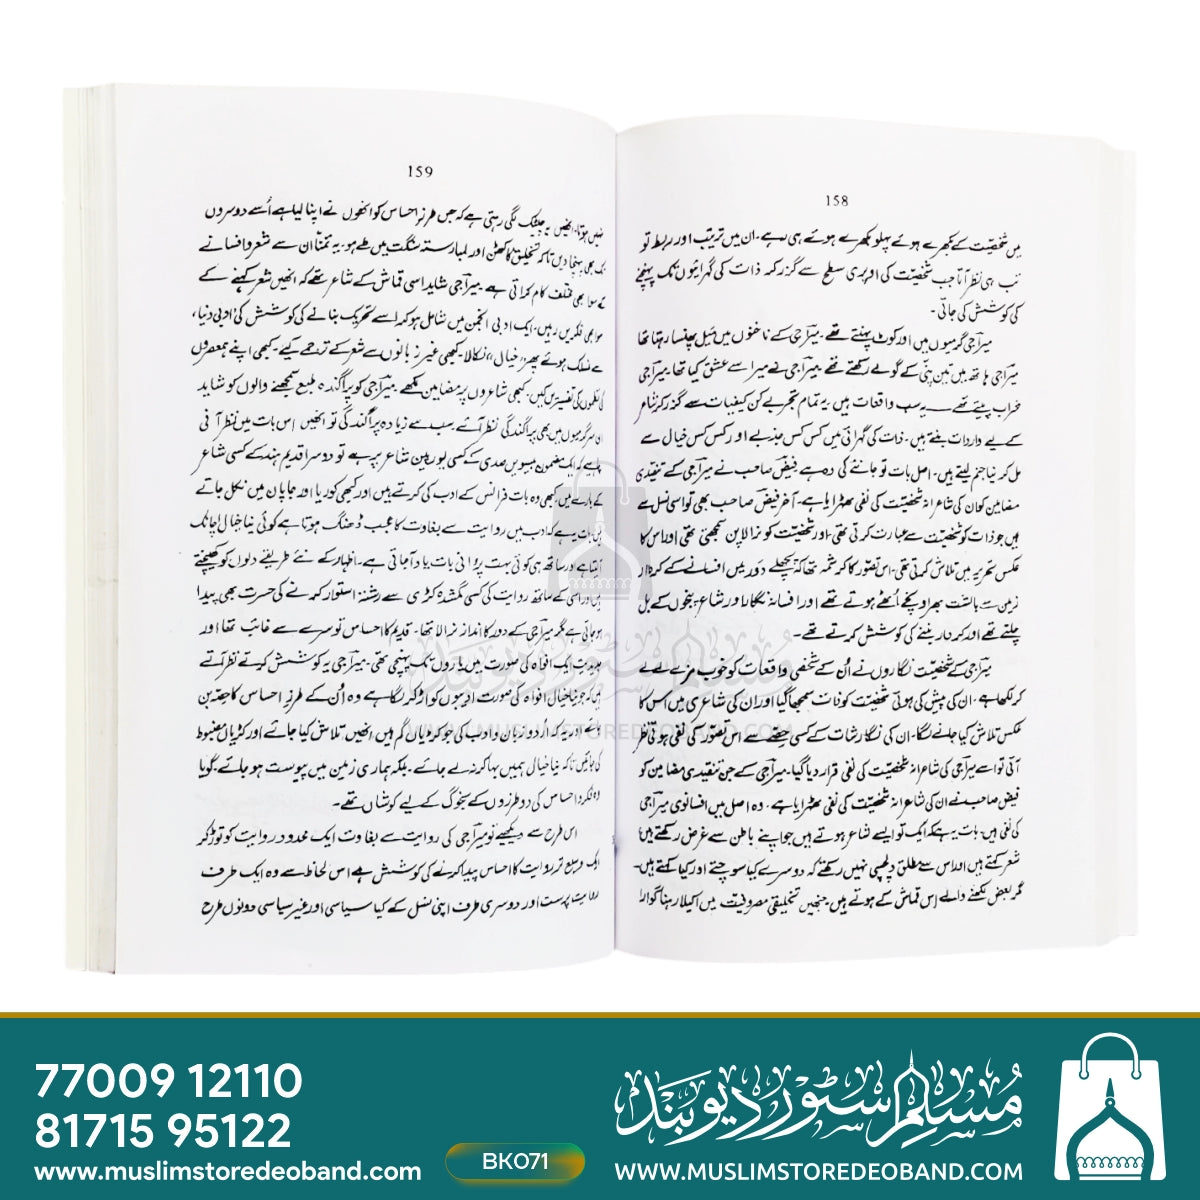 158
میں شخصیت کے بکھرے ہوئے پہلو بکھرے ہوئے ہی رہے۔ ان میں ترتیب اور ربط تو
تب ہی نظر آتا جب شخصیت کی اوپری سطح سے گزر کر ذات کی گہرائیوں تک پہنچنے
کی کوشش کی جاتی۔
میراجی گرمیوں میں اوور کوٹ پہنتے تھے۔ میراجی کے ناخنوں میں میل پھنسا رہتا تھا
میراجی ہاتھ میں تین پنی کے گولے رکھتے تھے۔ میراجی نے میرا سے عشق کیا تھا۔ میراجی
شراب پیتے تھے۔ یہ سب واقعات ہیں۔ یہ تمام تجربے کن کیفیات سے گزر کر شاعر
کے لیے واردات بنتے ہیں۔ ذات کی گہرائی میں کس کس جذبے اور کس کس خیال سے
مل کر نیا جنم لیتے ہیں۔ اصل بات تو جاننے کی وہ ہے۔ فیض صاحب نے میراجی کے تنقیدی
مضامین کو ان کی شاعرانہ شخصیت کی نفی ٹھہرایا ہے۔ آخر فیض صاحب بھی تو اسی نسل سے
ہیں جو ذات کو شخصیت سے عبارت کرتی تھی، اور شخصیت کو نرالا پن سمجھتی تھی اور اس کا
عکس تحریر میں تلاش کرتی تھی۔ اس تصور کا کرشمہ تھا کہ پچھلے دور میں افسانے کے کردار
زمین سے بالشت بھر اونچے اُٹھے ہوتے تھے اور افسانہ نگار اور شاعر پنجوں کے بل
چلتے تھے اور کردار بننے کی کوشش کرتے تھے۔
میراجی کے شخصیت نگاروں نے اُن کے شخصی واقعات کو خوب مزے لے لے
کر لکھا ہے۔ ان کی پیش کی ہوئی شخصیت کو ذات سمجھا گیا اور ان کی شاعری میں اس کا
عکس تلاش کیا جانے لگا۔ ان کی نگارشات کے کسی حصّے سے اس تصور کی نفی ہوتی نظر
آئی تو اسے میراجی کی شاعرانہ شخصیت کی نفی قرار دیا گیا۔ میراجی کے جن تنقیدی مضامین کو
فیض صاحب نے ان کی شاعرانہ شخصیت کی نفی ٹھہرایا ہے۔ وہ اصل میں افسانوی میراجی
کی نفی ہیں۔ بات یہ ہے کہ ایک تو ایسے شاعر ہوتے ہیں جو اپنے باطن سے غرض رکھتے ہیں
شعر کہتے ہیں اور اس سے مطلق دلچسپی نہیں رکھتے کہ دوسرے کیا سوچتے اور کیا کہتے ہیں۔
مگر بعض لکھنے والے اس قماش کے ہوتے ہیں جنہیں تخلیقی مصروفیت میں اکیلا رہنا گوارا
159
نہیں ہوتا، انھیں یہ چیٹک لگی رہتی ہے کہ جس طرزِ احساس کو انھوں نے اپنا لیا ہے اُسے دوسروں
تک بھی پہنچا دیں تاکہ تخلیق کا کٹھن اور لمبا رستہ سنگت میں طے ہو۔ یہ تمنا ان سے شعر و افسانے
کے سوا بھی مختلف کام کراتی ہے۔ میراجی شاید اسی قماش کے شاعر تھے کہ انھیں شعر کہنے کے
سوا بھی فکریں رہیں۔ ایک ادبی انجمن میں شامل ہو کر اسے تحریک بنانے کی کوشش کی ادبی دنیا،
سے منسلک ہوئے پھر "خیال" نکالا۔ کبھی غیر زبانوں سے شعر کے ترجمے کیے۔ کبھی اپنے ہمعصروں
کی نظموں کی تفسیریں کیں۔ کبھی شاعروں پر مضامین لکھے۔ میراجی کو پراگندہ طبع سمجھنے والوں کو شاید
ان سرگرمیوں میں بھی پراگندگی نظر آئے۔ سب سے زیادہ پراگندگی تو انھیں اس بات میں نظر آنی
چاہیے کہ ایک مضمون بیسویں صدی کے کسی یورپین شاعر پر ہے تو دوسرا قدیم ہند کے کسی شاعر
کے بارے میں کبھی وہ بات فرانس کے ادب کی کرتے ہیں اور کبھی کوریا اور جاپان میں نکل جاتے
ہیں بات یہ ہے کہ ادب میں روایت سے بغاوت کا عجب ڈھنگ ہوتا ہے کوئی نیا خیال اچانک
آتا ہے اور ساتھ ہی کوئی بہت پرانی بات یاد آ جاتی ہے۔ اظہار کے نئے طریقے دلوں کو کھینچتے
ہیں اور اسی کے ساتھ روایت کی کسی گمشدہ کڑی سے رشتہ استوار کرنے کی حسرت بھی پیدا
ہو جاتی ہے مگر میراجی کے دور کا انداز نرالا تھا۔ قدیم کا احساس تو سرے سے غائب تھا اور
جدیدیت ایک افواہ کی صورت میں یاروں تک پہنچی تھی۔ میراجی یہ کوشش کرتے نظر آتے
ہیں کہ جو نیا خیال افواہ کی صورت ادیبوں کو اڑا کر لے گیا ہے وہ اُن کے طرزِ احساس کا جزو بن
جائے اور یہ کہ اردو زبان و ادب کی جو کڑیاں گم ہیں انھیں تلاش کیا جائے اور کڑیاں مضبوط
کی جائیں تاکہ نیا خیال ہمیں بہا کر نہ لے جائے۔ بلکہ ہماری زمین میں پیوست ہو جائے، گویا
وہ فکر و احساس کی دو طرزوں کے سنجوگ کے لیے کوشاں تھے۔
اس طرح سے دیکھیے تو میراجی کی روایت سے بغاوت ایک محدود روایت کو توڑ کر
ایک وسیع تر روایت کا احساس پیدا کرنے کی کوشش ہے اس لحاظ سے وہ ایک طرف
روایت پرست اور دوسری طرف اپنی نسل کے کیا سیاسی اور غیر سیاسی دونوں طرح
مسلم سٹور دیوبند
WWW.MUSLIMSTOREDEOBAND.COM
77009 12110
81715 95122
www.muslimstoredeoband.com
BK071
مسلم سٹور دیوبند
WWW.MUSLIMSTOREDEOBAND.COM